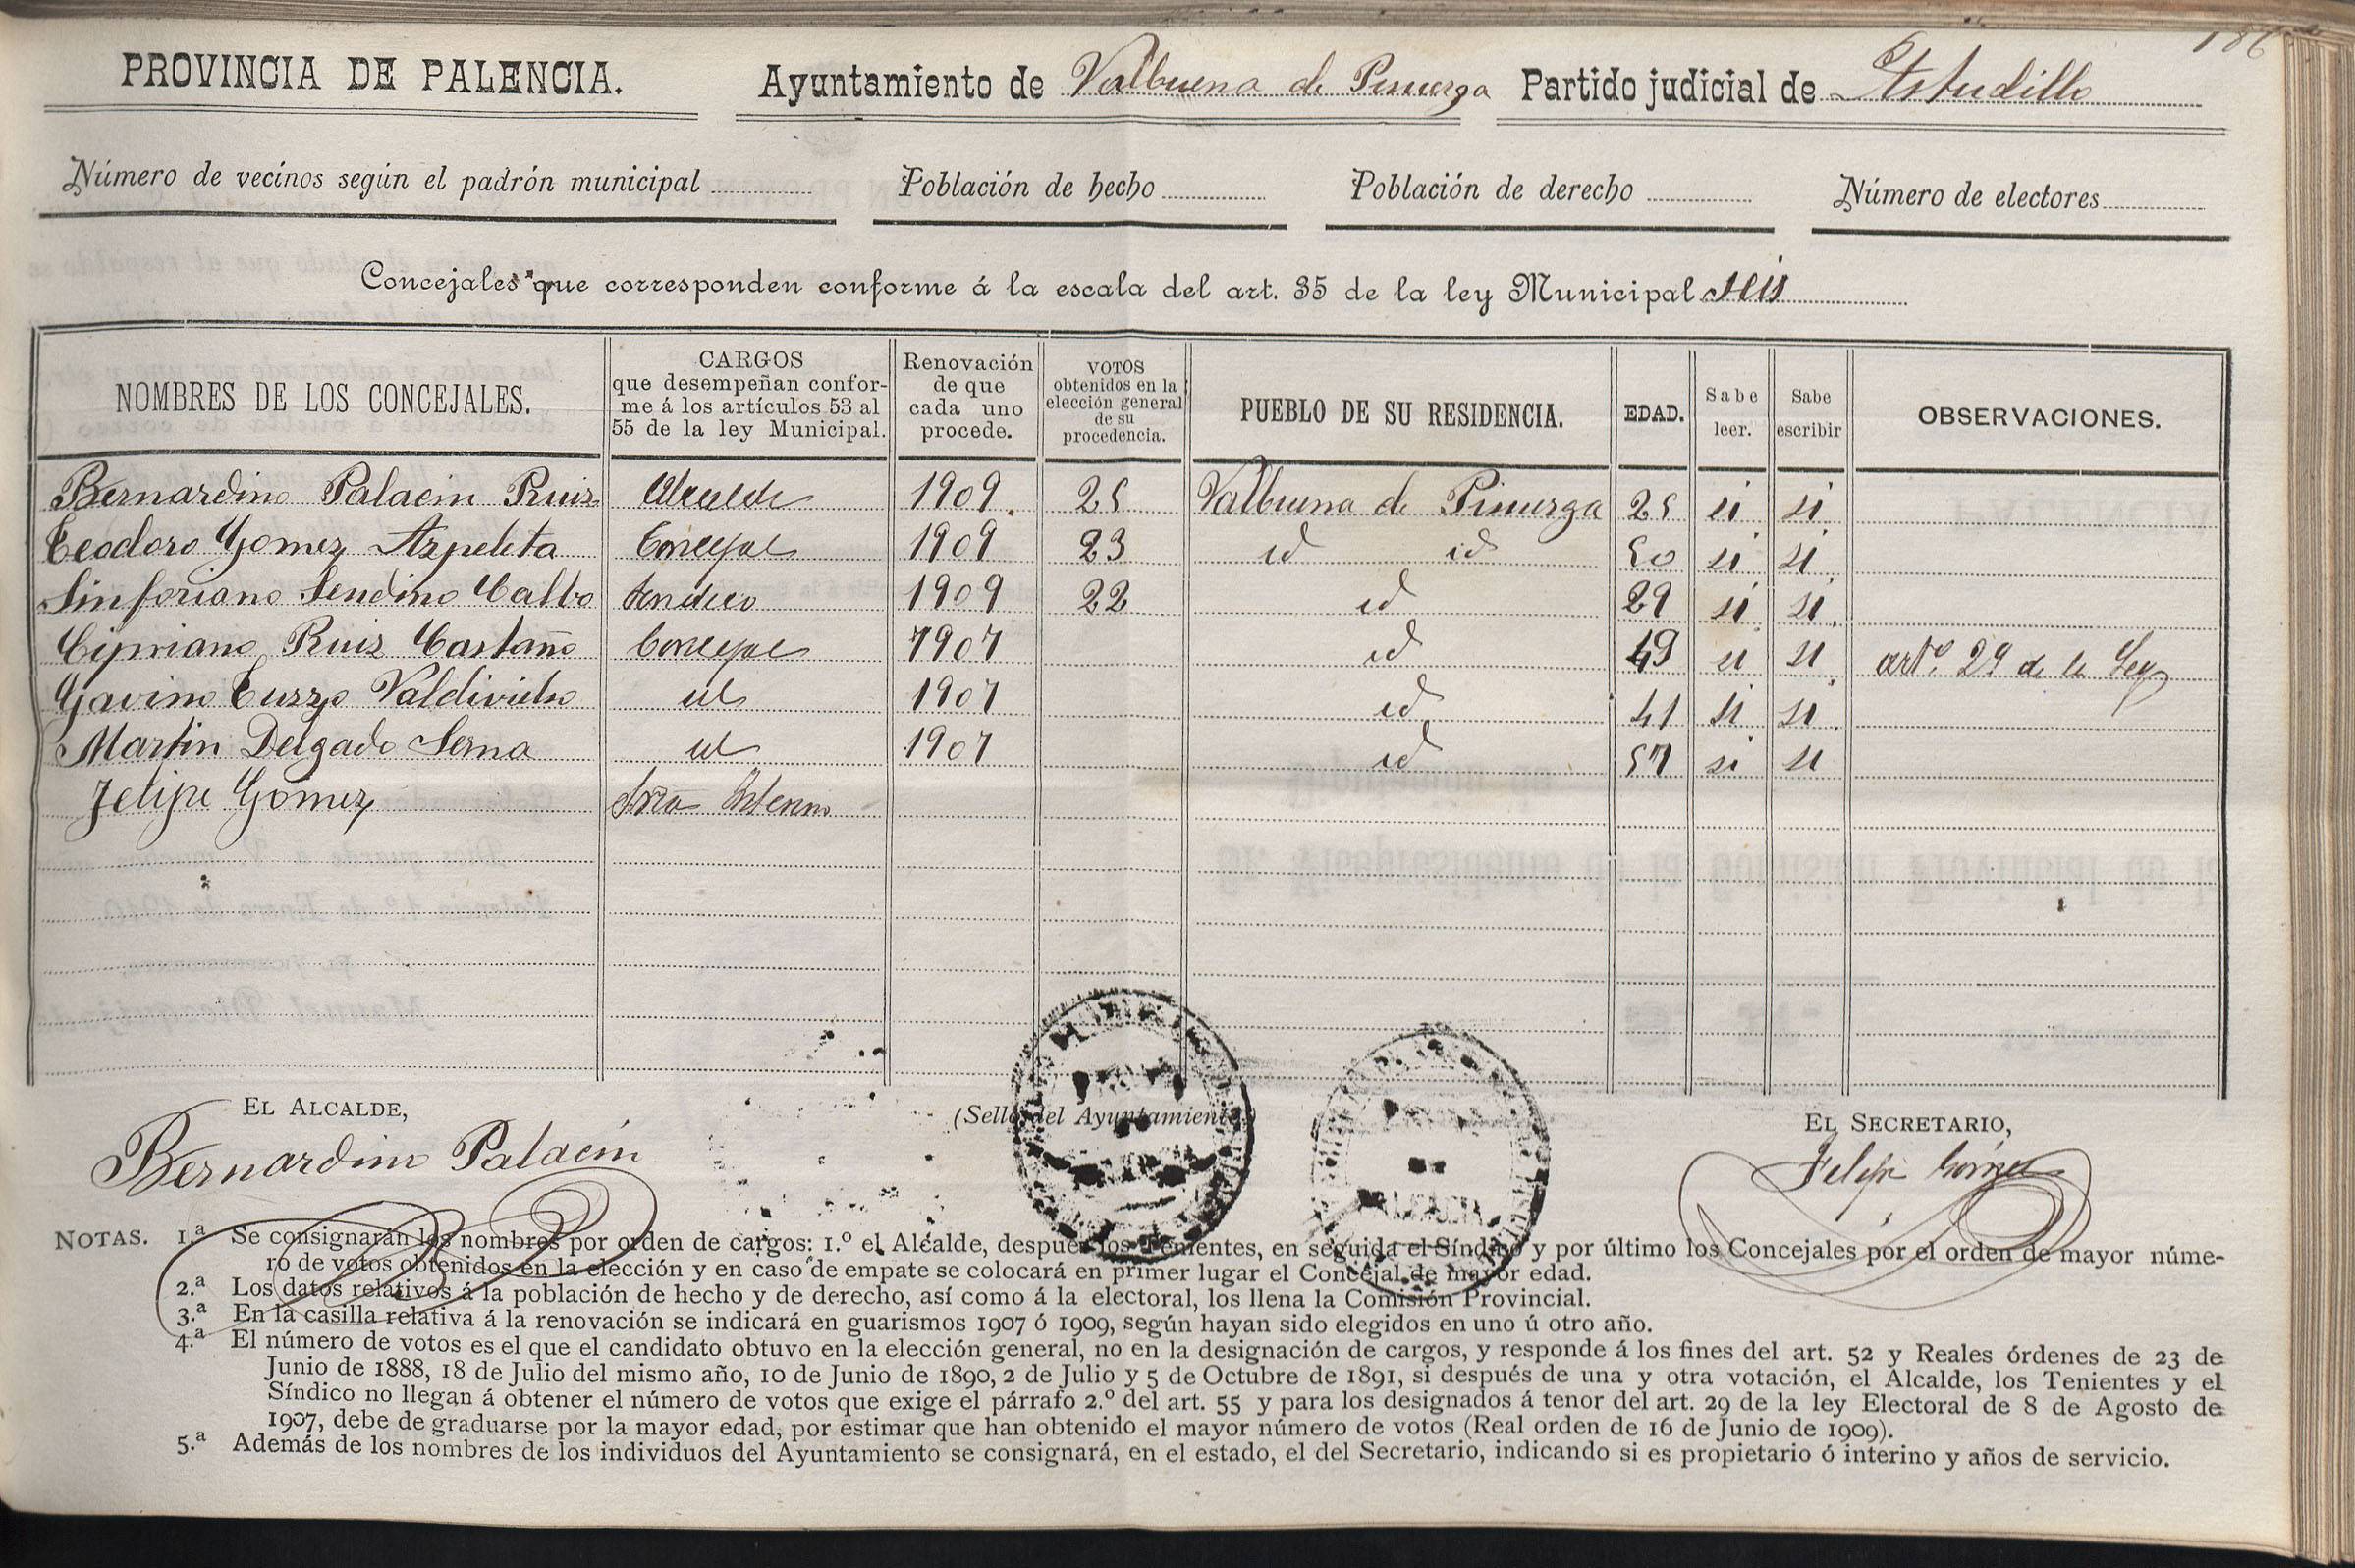 186
PROVINCIA DE PALENCIA. Ayuntamiento de Valbuena de Pisuerga Partido judicial de Astudillo
Número de vecinos según el padrón municipal Población de hecho Población de derecho Número de electores
Concejales que corresponden conforme á la escala del art. 35 de la ley Municipal seis
NOMBRES DE LOS CONCEJALES. CARGOS que desempeñan confor-me á los artículos 53 al 55 de la ley Municipal. Renovación de que cada uno procede. VOTOS obtenidos en la elección general de su procedencia. PUEBLO DE SU RESIDENCIA. EDAD. Sabe leer. Sabe escribir OBSERVACIONES.
Bernardino Palacin Ruiz Alcalde 1909. 25 Valbuena de Pisuerga 25 si si
Teodoro Gomez Azpeleta Concejal 1909 23 id id 50 si si
Sinforiano Sendino Calbo Sindico 1909 22 id 29 si si
Cipriano Ruiz Castaño Concejal 1907 id 49 si si artº 29 de la Ley
Gavino Cuzzo Valdivielso id 1907 id 41 si si
Martin Delgado Serna id 1907 id 57 si si
Felipe Gomez Srio Interino
EL ALCALDE,
(Sello del Ayuntamiento)
EL SECRETARIO,
Bernardino Palacín
Felipe Gómez
PALENCIA
NOTAS. 1.ª Se consignarán los nombres por orden de cargos: 1.º el Alcalde, después los Tenientes, en seguida el Síndico y por último los Concejales por el orden de mayor núme-
ro de votos obtenidos en la elección y en caso de empate se colocará en primer lugar el Concejal de mayor edad.
2.ª Los datos relativos á la población de hecho y de derecho, así como á la electoral, los llena la Comisión Provincial.
3.ª En la casilla relativa á la renovación se indicará en guarismos 1907 ó 1909, según hayan sido elegidos en uno ú otro año.
4.ª El número de votos es el que el candidato obtuvo en la elección general, no en la designación de cargos, y responde á los fines del art. 52 y Reales órdenes de 23 de
Junio de 1888, 18 de Julio del mismo año, 10 de Junio de 1890, 2 de Julio y 5 de Octubre de 1891, si después de una y otra votación, el Alcalde, los Tenientes y el
Síndico no llegan á obtener el número de votos que exige el párrafo 2.º del art. 55 y para los designados á tenor del art. 29 de la ley Electoral de 8 de Agosto de
1907, debe de graduarse por la mayor edad, por estimar que han obtenido el mayor número de votos (Real orden de 16 de Junio de 1909).
5.ª Además de los nombres de los individuos del Ayuntamiento se consignará, en el estado, el del Secretario, indicando si es propietario ó interino y años de servicio.